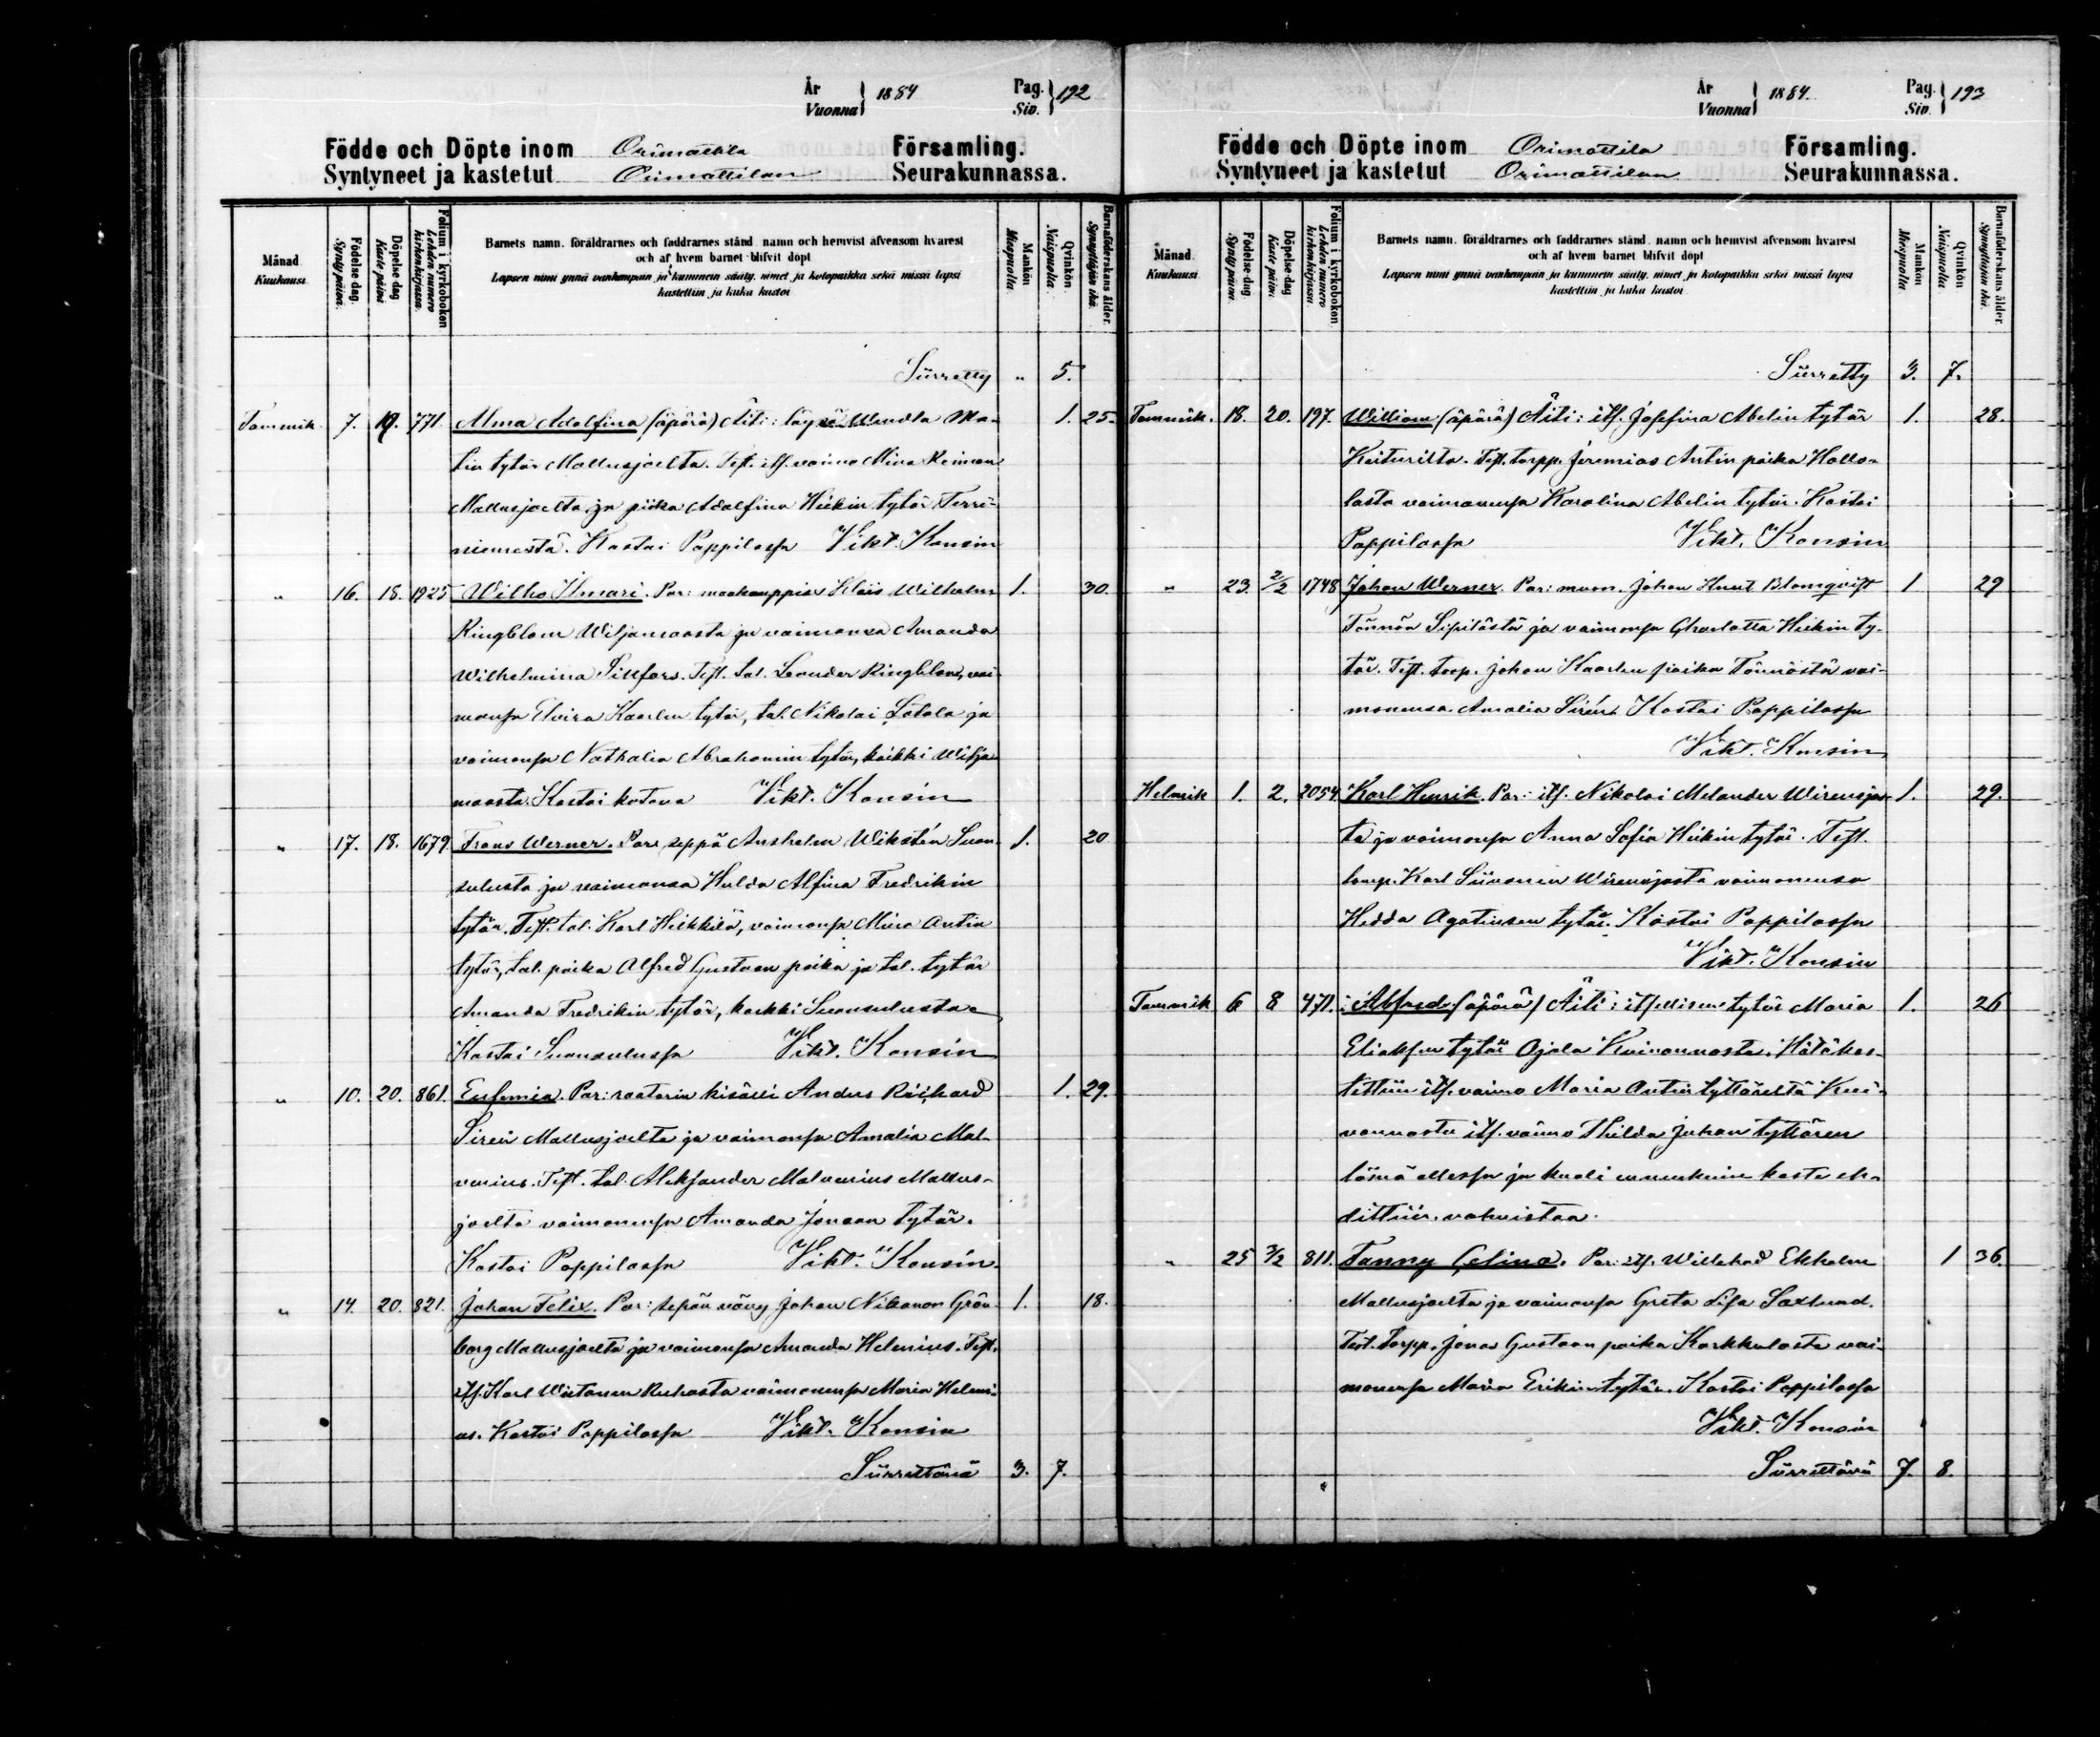 År
Vuonna } 1884
Pag.
Siv. } 192
Födde och Döpte inom Orimattila Församling.
Syntyneet ja kastetut Orimattilan Seurakunnassa.
Månad.
Kuukausi.
Födelse-dag.
Synty päivä.
Döpelse-dag
Kaste päivä.
Folium i kyrkoboken
Lehden numero
kirkonkirjassa.
Barnets namn, föräldrarnes och faddrarnes stånd, namn och hemvist äfvensom hvarest
och af hvem barnet blifvit döpt
Lapsen nimi ynnä vanhempain ja kummein sääty, nimet ja kotopaikka sekä missä lapsi
kastettiin ja kuka kastoi
Mankön
Miespuolia.
Qvinkön
Naispuolia.
Barnaföderskans ålder.
Synnyttäjän ikä.
Siirretty " 5.
Tammik. 7. 19. 771. Alma Adolfina (äpärä) Äiti: Wendla Ma- 1. 25.
tin tytär Mallusjoelta. Test. its. vaimo Mina Reiman
Mallusjoelta ja piika Adolfina Heikin tytär Terri-
niemestä. Kastoi Pappilassa Vikt. Konsin
" 16. 18. 1925 Wilho Ilmari. Van: maakauppias Wilhelm 1. 30.
Ringblom Wiljamaasta ja vaimonsa Amanda
Wilhelmina Test. tal. Leander Ringblom, vai-
monsa Elvira Kaarlen tytär, tal. Nikolai Sotala ja
vaimonsa Nathalia Abrahamin tytär, kaikki Wilja-
maasta. Kastoi kotona Vikt. Konsin
" 17. 18. 1679 Frans Werner. Van: seppä Anshelm Wiksten Luon- 1. 20
sulusta ja vaimonsa Hulda Alfina Fredrikin
tytär. Test. tal. Karl Heikkilä, vaimonsa Mina Antin
tytär, tal. poika Alfred Gustaan poika ja tal. tytär
Amanda Fredrikin tytär, kaikki
Kastoi Vikt. Konsin
" 10. 20. 861. Eufemia. Van: raatarin kisälli Anders Richard 1. 29.
Siren Mallusjoelta ja vaimonsa Amalia Mal-
venius. Test. tal. Aleksander Malvenius Mallus-
joelta vaimonensa Amanda Jonaan tytär.
Kastoi Pappilassa Vikt. Konsin.
" 14. 20. 821. Johan Felix. Van: sepän vävy Johan Nikanon Grön- 1. 18.
borg Mallusjoelta ja vaimonsa Amanda Helenius. Test.
its. Karl Wirtanen Ruhasta vaimonensa Maria Heleni-
us. Kastoi Pappilassa Vikt. Konsin
Siirrettävä 3. 7.
År
Vuonna } 1884.
Pag.
Siv. } 193
Födde och Döpte inom Orimattila Församling.
Syntyneet ja kastetut Orimattilan Seurakunnassa.
Månad.
Kuukausi.
Födelse-dag.
Synty päivä.
Döpelse-dag
Kaste päivä.
Folium i kyrkoboken
Lehden numero
kirkonkirjassa.
Barnets namn, föräldrarnes och faddrarnes stånd, namn och hemvist äfvensom hvarest
och af hvem barnet blifvit döpt
Lapsen nimi ynnä vanhempain ja kummein sääty, nimet ja kotopaikka sekä missä lapsi
kastettiin ja kuka kastoi
Mankön
Miespuolia.
Qvinkön
Naispuolia.
Barnaföderskans ålder.
Synnyttäjän ikä.
Siirretty 3. 7.
Tammik. 18. 20. 197. William (äpärä) Äiti: its. Josefina Abelin tytär 1. 28.
Test. torpp. Jeremias Antin poika Hollo-
lasta vaimonensa Karolina Abelin tytär. Kastoi
Pappilassa Vikt. Konsin
" 23. 2/2 1748 Johan Werner. Van: muon. Johan Knut Blomqvist 1 29
Tönnön Sipilästä ja vaimonsa Charlotta Heikin ty-
tär. Test. torp. Johan Kaarlen poika Tönnöstä vai-
monensa Amalia Sirén. Kastoi Pappilassa
Vikt. Konsin
Helmik 1. 2. 2054 Karl Henrik. Van: its. Nikolai Melander Wirenojas- 1. 29.
ta ja vaimonsa Anna Sofia Heikin tytär. Test.
lamp. Karl Siivonen Wirenojasta vaimonensa
Hedda Agatinsen tytär. Kastoi Pappilassa
Vikt. Konsin
Tammik 6 8 471. Alfred (äpärä) Äiti: itsellisen tytär Maria 1. 26
Eliaksen tytär Ojala Kuivannosta. Hätäkas-
tettiin its. vaimo Maria Antin tyttäreltä Kui-
vannosta its. vaimo Thilda Juhan tyttären
läsnä ollessa ja kuoli ennenkuin kaste eh-
dittiin vahvistaa.
" 25 3/2 811. Fanny Celina. Van: its. Willehad Ekholm 1 36
Mallusjoelta ja vaimonsa Greta Lisa Saxlund.
Test. torpp. Jona Gustaan poika Karkkulasta vai-
monensa Maria Erikin tytär. Kastoi Pappilassa
Vikt. Konsin
Siirrettävä 7. 8.